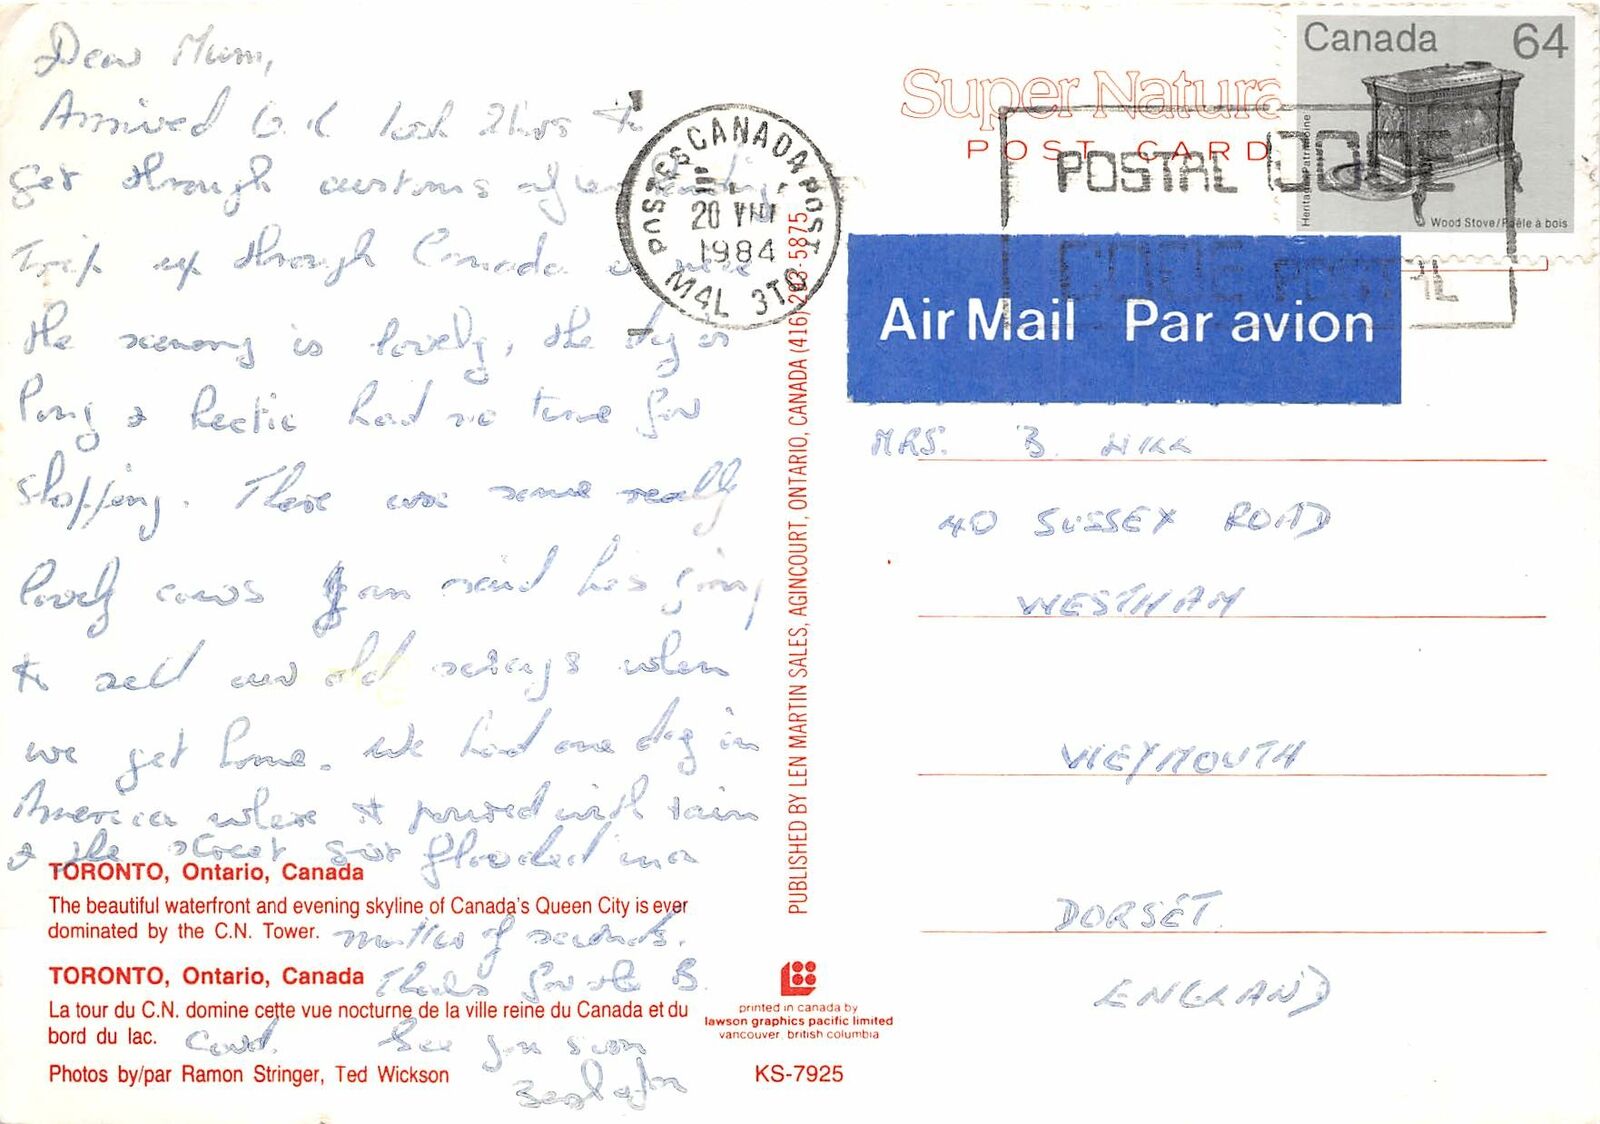 Dear Mum,
Arrived O.K took 2hrs to
get through customs after landing.
Trip up through Canada is nice
the scenery is lovely, the day is
long & hectic had no time for
shopping. There are some really
lovely cars Jan said he's going
to sell our old when
we get home. We had one day in
America where it poured with rain
& the street got flooded in a
matter of seconds.
Thanks for the B.
Card. See you soon
TORONTO, Ontario, Canada
The beautiful waterfront and evening skyline of Canada's Queen City is ever
dominated by the C.N. Tower.
TORONTO, Ontario, Canada
La tour du C.N. domine cette vue nocturne de la ville reine du Canada et du
bord du lac.
Photos by/par Ramon Stringer, Ted Wickson
PUBLISHED BY LEN MARTIN SALES, AGINCOURT, ONTARIO, CANADA (416) 293-5875
printed in canada by
lawson graphics pacific limited
vancouver, british columbia
KS-7925
CANADA POST POSTES
20 VIII
1984
M4L 3T0
Super Natural
POST CARD
Canada 64
Heritage Patrimoine
Wood Stove/Poêle à bois
POSTAL CODE
CODE POSTAL
Air Mail Par avion
MRS. B. HILL
40 SUSSEX ROAD
WESTHAM
WEYMOUTH
DORSET.
ENGLAND